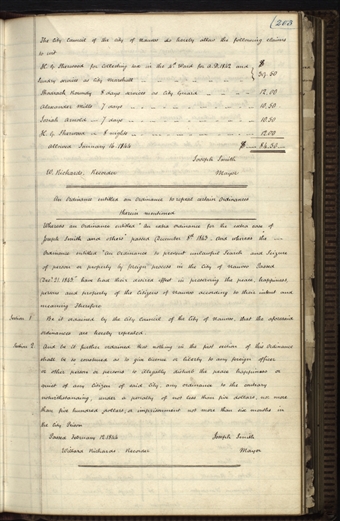 (203
The City Council of the city of Nauvoo do hereby allow the following claims
to wit
H. G. Sherwood for Collecting tax in the 2d Ward for A.D. 1842 and $
Sundry services as City Marshall 39.50
Pharaoh 8 days services as City Guard 12.00
Alexander Mills 7 days 10.50
Josiah Arnold 7 days 10.50
H. G. Sherwood 8 nights 12.00
Allowed January 16. 1844 $ 84.50
Joseph Smith
W. Richards, Recorder Mayor
An Ordinance entitled an Ordinance to repeal certain Ordinances
therein mentioned
Whereas an Ordinance entitled "An extra ordinance for the extra case of
Joseph Smith and others" passed December 8th 1843. And whereas the
Ordinance entitled "An Ordinance to prevent unlawful Search and Seizure
of person or property by foreign process in the City of Nauvoo Passed
Decr 21. 1843" have had their desired effect in preserving the peace, happiness,
persons and property of the Citizens of Nauvoo according to their intent and
meaning Therefore
Section 1 Be it ordained by the City Council of the City of Nauvoo, that the aforesaid
ordinances are hereby repealed.
Section 2. And be it further ordained that nothing in the first section of this Ordinance
shall be so construed as to give license or liberty to any foreign officer
or other person or persons to illegally disturb the peace happiness or
quiet of any Citizen of said City, any ordinance to the contrary
notwithstanding, under a penalty of not less than five dollars, nor more
than five hundred dollars, or imprisonment not more than six months in
the City Prison
Passed February 12. 1844 Joseph Smith
Willard Richards. Recorder Mayor